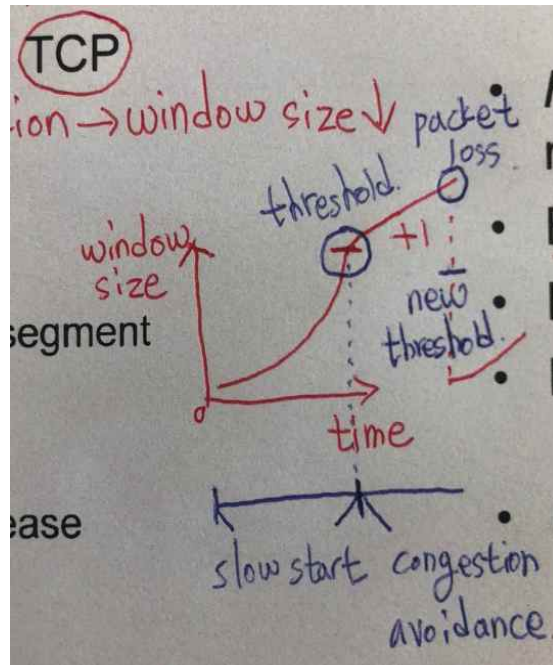 TCP
ion → window size ↓
packet
loss
threshold.
window
size
+1
segment
new
threshold.
0
time
ease
slow start congestion
avoidance.